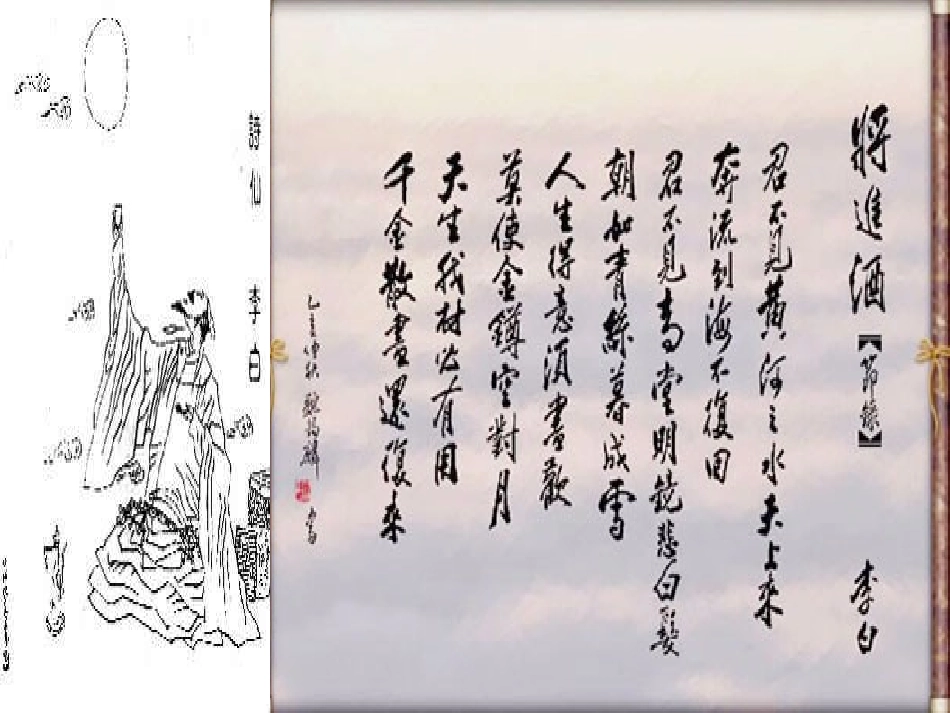 將進酒【節錄】 李白
君不見黃河之水天上來
奔流到海不復回
君不見高堂明鏡悲白髮
朝如青絲暮成雪
人生得意須盡歡
莫使金罇空對月
天生我材必有用
千金散盡還復來
詩仙 李白